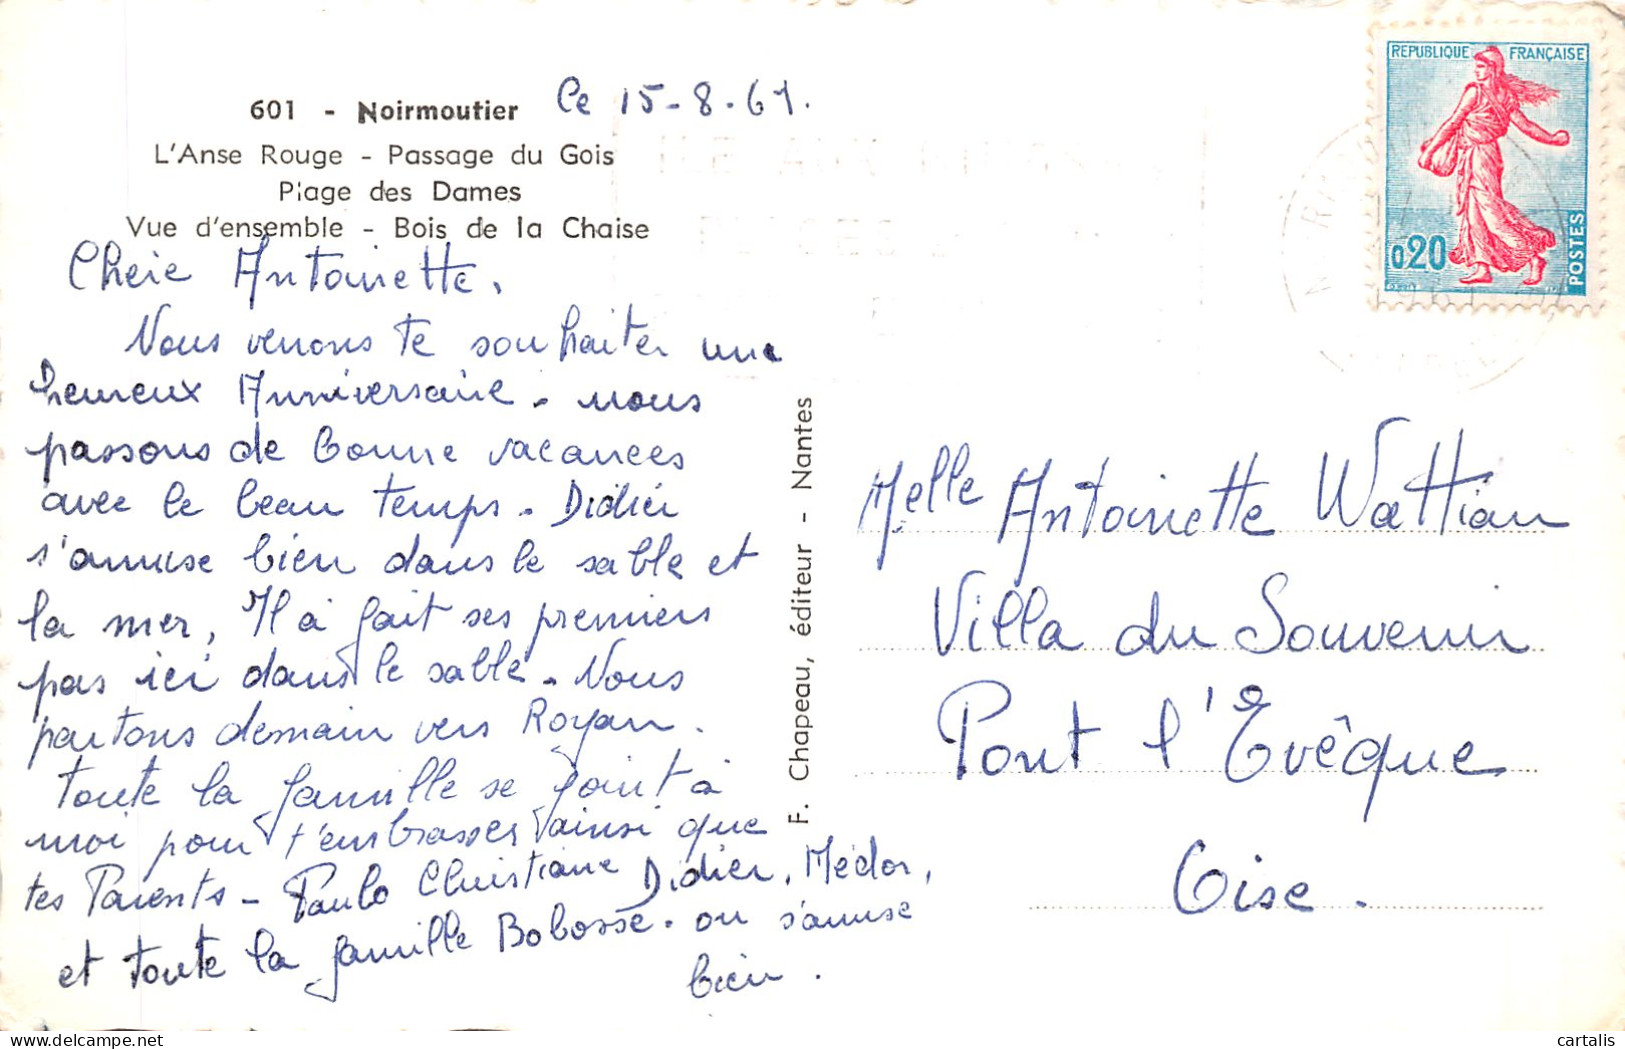 601 - Noirmoutier
Ce 15-8-61.
L'Anse Rouge - Passage du Gois
Plage des Dames
Vue d'ensemble - Bois de la Chaise
Cheie Antoinette.
Nous venons te souhaiter une
heureux Anniversaire. nous
passons de bonne vacances
avec le beau temps. Didier
s'amuse bien dans le sable et
la mer, Il à fait ses premiers
pas ici dans le sable. Nous
partons demain vers Royan.
toute la famille se joint à
moi pour t'embrasser ainsi que
tes Parents - Paulo Christiane Didier, Médor,
et toute la famille Bobosse. on s'amuse
bien.
F. Chapeau, éditeur - Nantes
REPUBLIQUE FRANÇAISE
0,20
POSTES
Melle Antoinette Wattiau
Villa du Souvenir
Pont l'Evêque
Oise.
cartalis